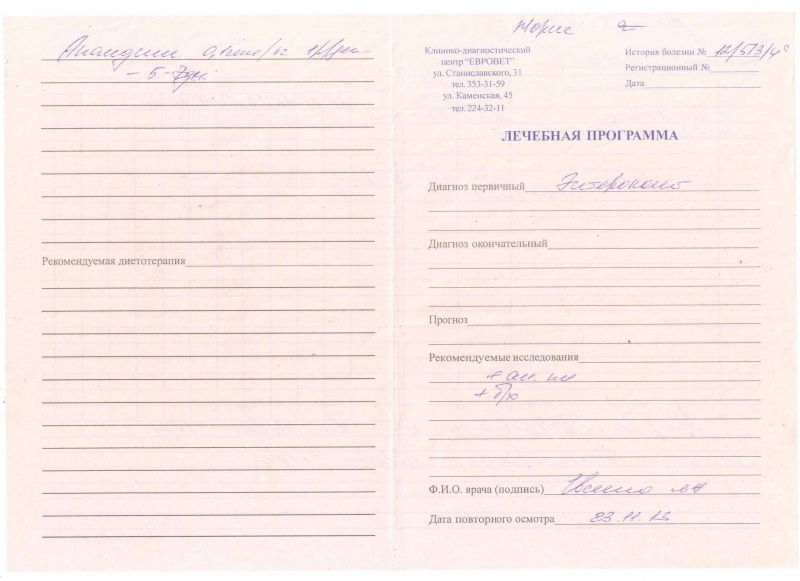 0,1 мл/кг 1 р/день
– 5-7 дн.
Рекомендуемая диетотерапия
Норис
Клинико-диагностический
центр "ЕВРОВЕТ"
ул. Станиславского, 31
тел. 353-31-59
ул. Каменская, 45
тел. 224-32-11
История болезни №
Регистрационный №
Дата
ЛЕЧЕБНАЯ ПРОГРАММА
Диагноз первичный Энтероколит
Диагноз окончательный
Прогноз
Рекомендуемые исследования
+ ан.
+ б/х
Ф.И.О. врача (подпись)
Дата повторного осмотра 23.11.13